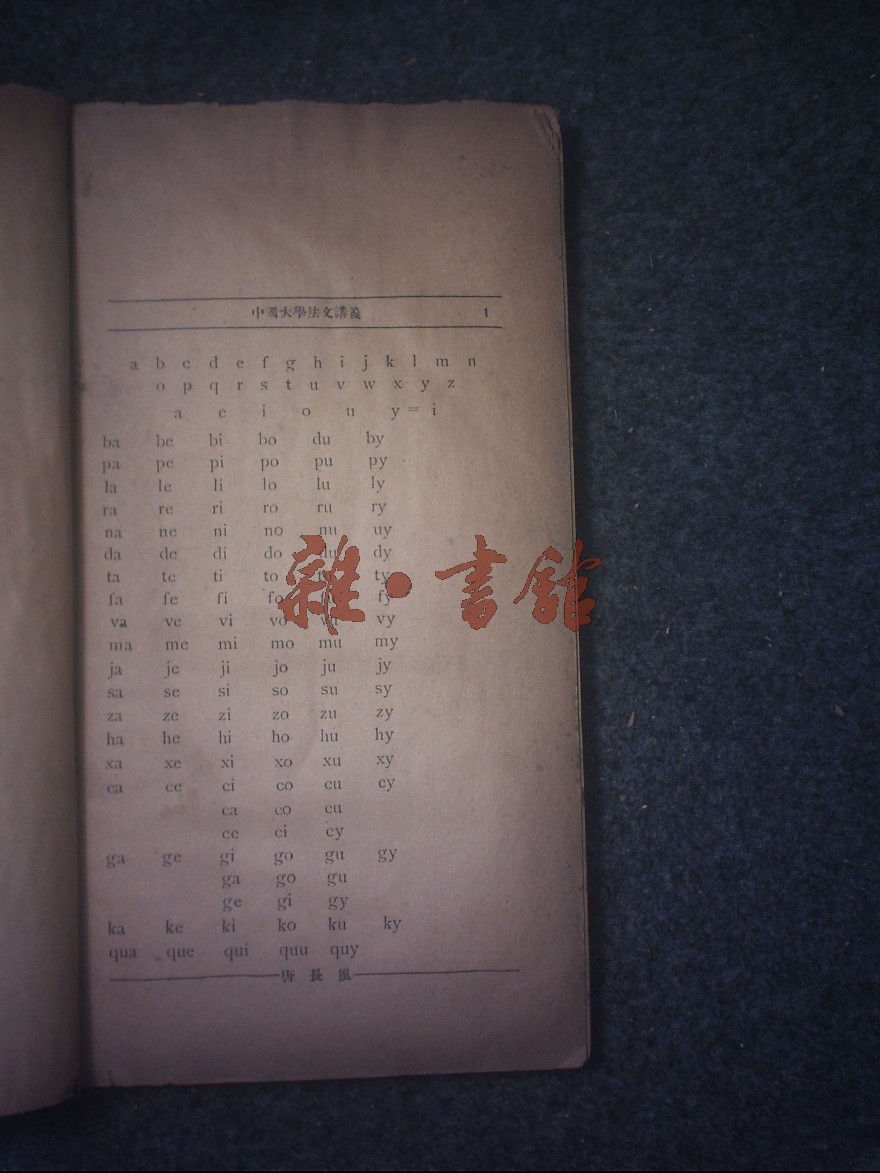 中國大學法文講義 1
a b c d e f g h i j k l m n
o p q r s t u v w x y z
a e i o u y = i
ba be bi bo du by
pa pe pi po pu py
la le li lo lu ly
ra re ri ro ru ry
na ne ni no nu uy
da de di do du dy
ta te ti to ty
fa fe fi fo fy
va ve vi vo vu vy
ma me mi mo mu my
ja je ji jo ju jy
sa se si so su sy
za ze zi zo zu zy
ha he hi ho hu hy
xa xe xi xo xu xy
ca ce ci co cu cy
ca co cu
ce ci cy
ga ge gi go gu gy
ga go gu
ge gi gy
ka ke ki ko ku ky
qua que qui quu quy
唐長風
雜·書館